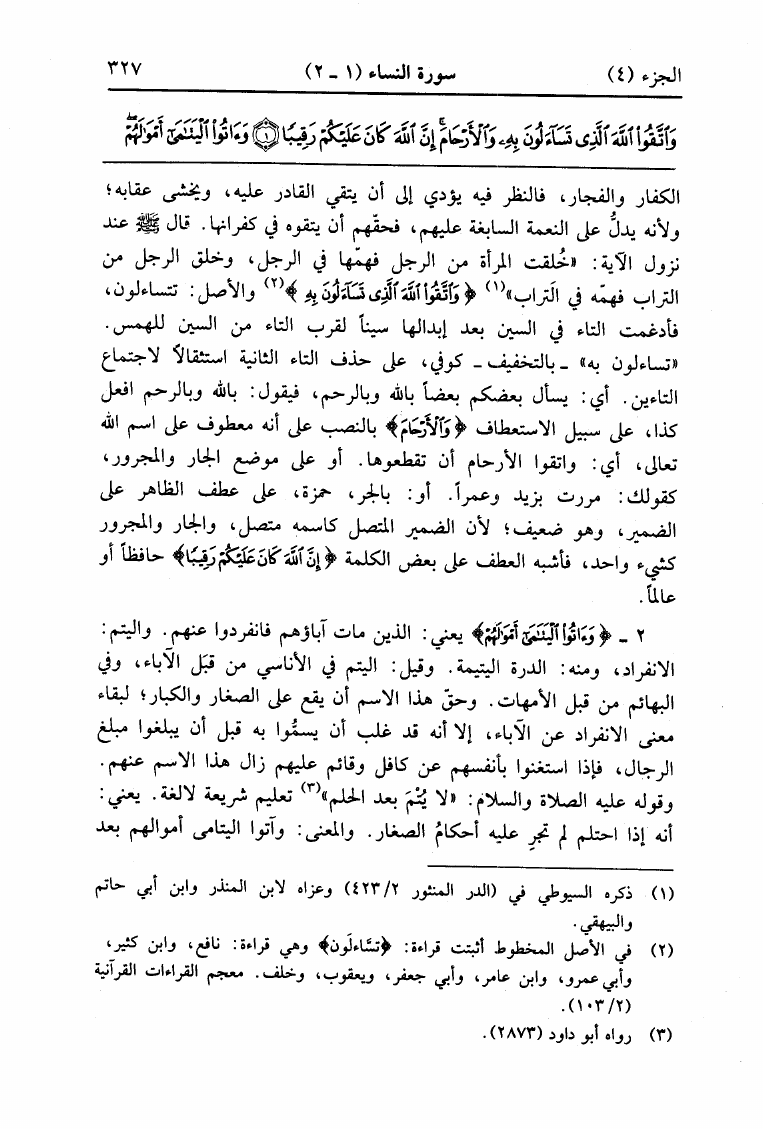 الجزء (٤) سورة النساء (١ - ٢) ٣٢٧
وَٱتَّقُوا۟ ٱللَّهَ ٱلَّذِى تَسَآءَلُونَ بِهِۦ وَٱلْأَرْحَامَ ۚ إِنَّ ٱللَّهَ كَانَ عَلَيْكُمْ رَقِيبًا ١ وَءَاتُوا۟ ٱلْيَتَـٰمَىٰٓ أَمْوَٰلَهُمْ ۖ
الكفار والفجار، فالنظر فيه يؤدي إلى أن يتقي القادر عليه، ويخشى عقابه؛
ولأنه يدلُّ على النعمة السابغة عليهم، فحقّهم أن يتقوه في كفرانها. قال ﷺ عند
نزول الآية: «خُلقت المرأة من الرجل فهمّها في الرجل، وخلق الرجل من
التراب فهمّه في التراب»(١) ﴿ وَٱتَّقُوا۟ ٱللَّهَ ٱلَّذِى تَسَآءَلُونَ بِهِۦ ﴾(٢) والأصل: تتساءلون،
فأدغمت التاء في السين بعد إبدالها سيناً لقرب التاء من السين للهمس.
«تساءلون به» ـ بالتخفيف ـ كوفي، على حذف التاء الثانية استثقالاً لاجتماع
التاءين. أي: يسأل بعضكم بعضاً بالله وبالرحم، فيقول: بالله وبالرحم افعل
كذا، على سبيل الاستعطاف ﴿ وَٱلْأَرْحَامَ ﴾ بالنصب على أنه معطوف على اسم الله
تعالى، أي: واتقوا الأرحام أن تقطعوها. أو على موضع الجار والمجرور،
كقولك: مررت بزيد وعمراً. أو: بالجر، حمزة، على عطف الظاهر على
الضمير، وهو ضعيف؛ لأن الضمير المتصل كاسمه متصل، والجار والمجرور
كشيء واحد، فأشبه العطف على بعض الكلمة ﴿ إِنَّ ٱللَّهَ كَانَ عَلَيْكُمْ رَقِيبًا ﴾ حافظاً أو
عالماً.
٢ ـ ﴿ وَءَاتُوا۟ ٱلْيَتَـٰمَىٰٓ أَمْوَٰلَهُمْ ﴾ يعني: الذين مات آباؤهم فانفردوا عنهم. واليتم:
الانفراد، ومنه: الدرة اليتيمة. وقيل: اليتم في الأناسي من قبَل الآباء، وفي
البهائم من قبل الأمهات. وحقّ هذا الاسم أن يقع على الصغار والكبار؛ لبقاء
معنى الانفراد عن الآباء، إلا أنه قد غلب أن يسمُّوا به قبل أن يبلغوا مبلغ
الرجال، فإذا استغنوا بأنفسهم عن كافل وقائم عليهم زال هذا الاسم عنهم.
وقوله عليه الصلاة والسلام: «لا يُتْمَ بعد الحلم»(٣) تعليم شريعة لالغة. يعني:
أنه إذا احتلم لم تجرِ عليه أحكامُ الصغار. والمعنى: وآتوا اليتامى أموالهم بعد
(١) ذكره السيوطي في (الدر المنثور ٤٢٣/٢) وعزاه لابن المنذر وابن أبي حاتم
والبيهقي.
(٢) في الأصل المخطوط أثبتت قراءة: ﴿تسَّاءلُون﴾ وهي قراءة: نافع، وابن كثير،
وأبي عمرو، وابن عامر، وأبي جعفر، ويعقوب، وخلف. معجم القراءات القرآنية
(١٠٣/٢).
(٣) رواه أبو داود (٢٨٧٣).